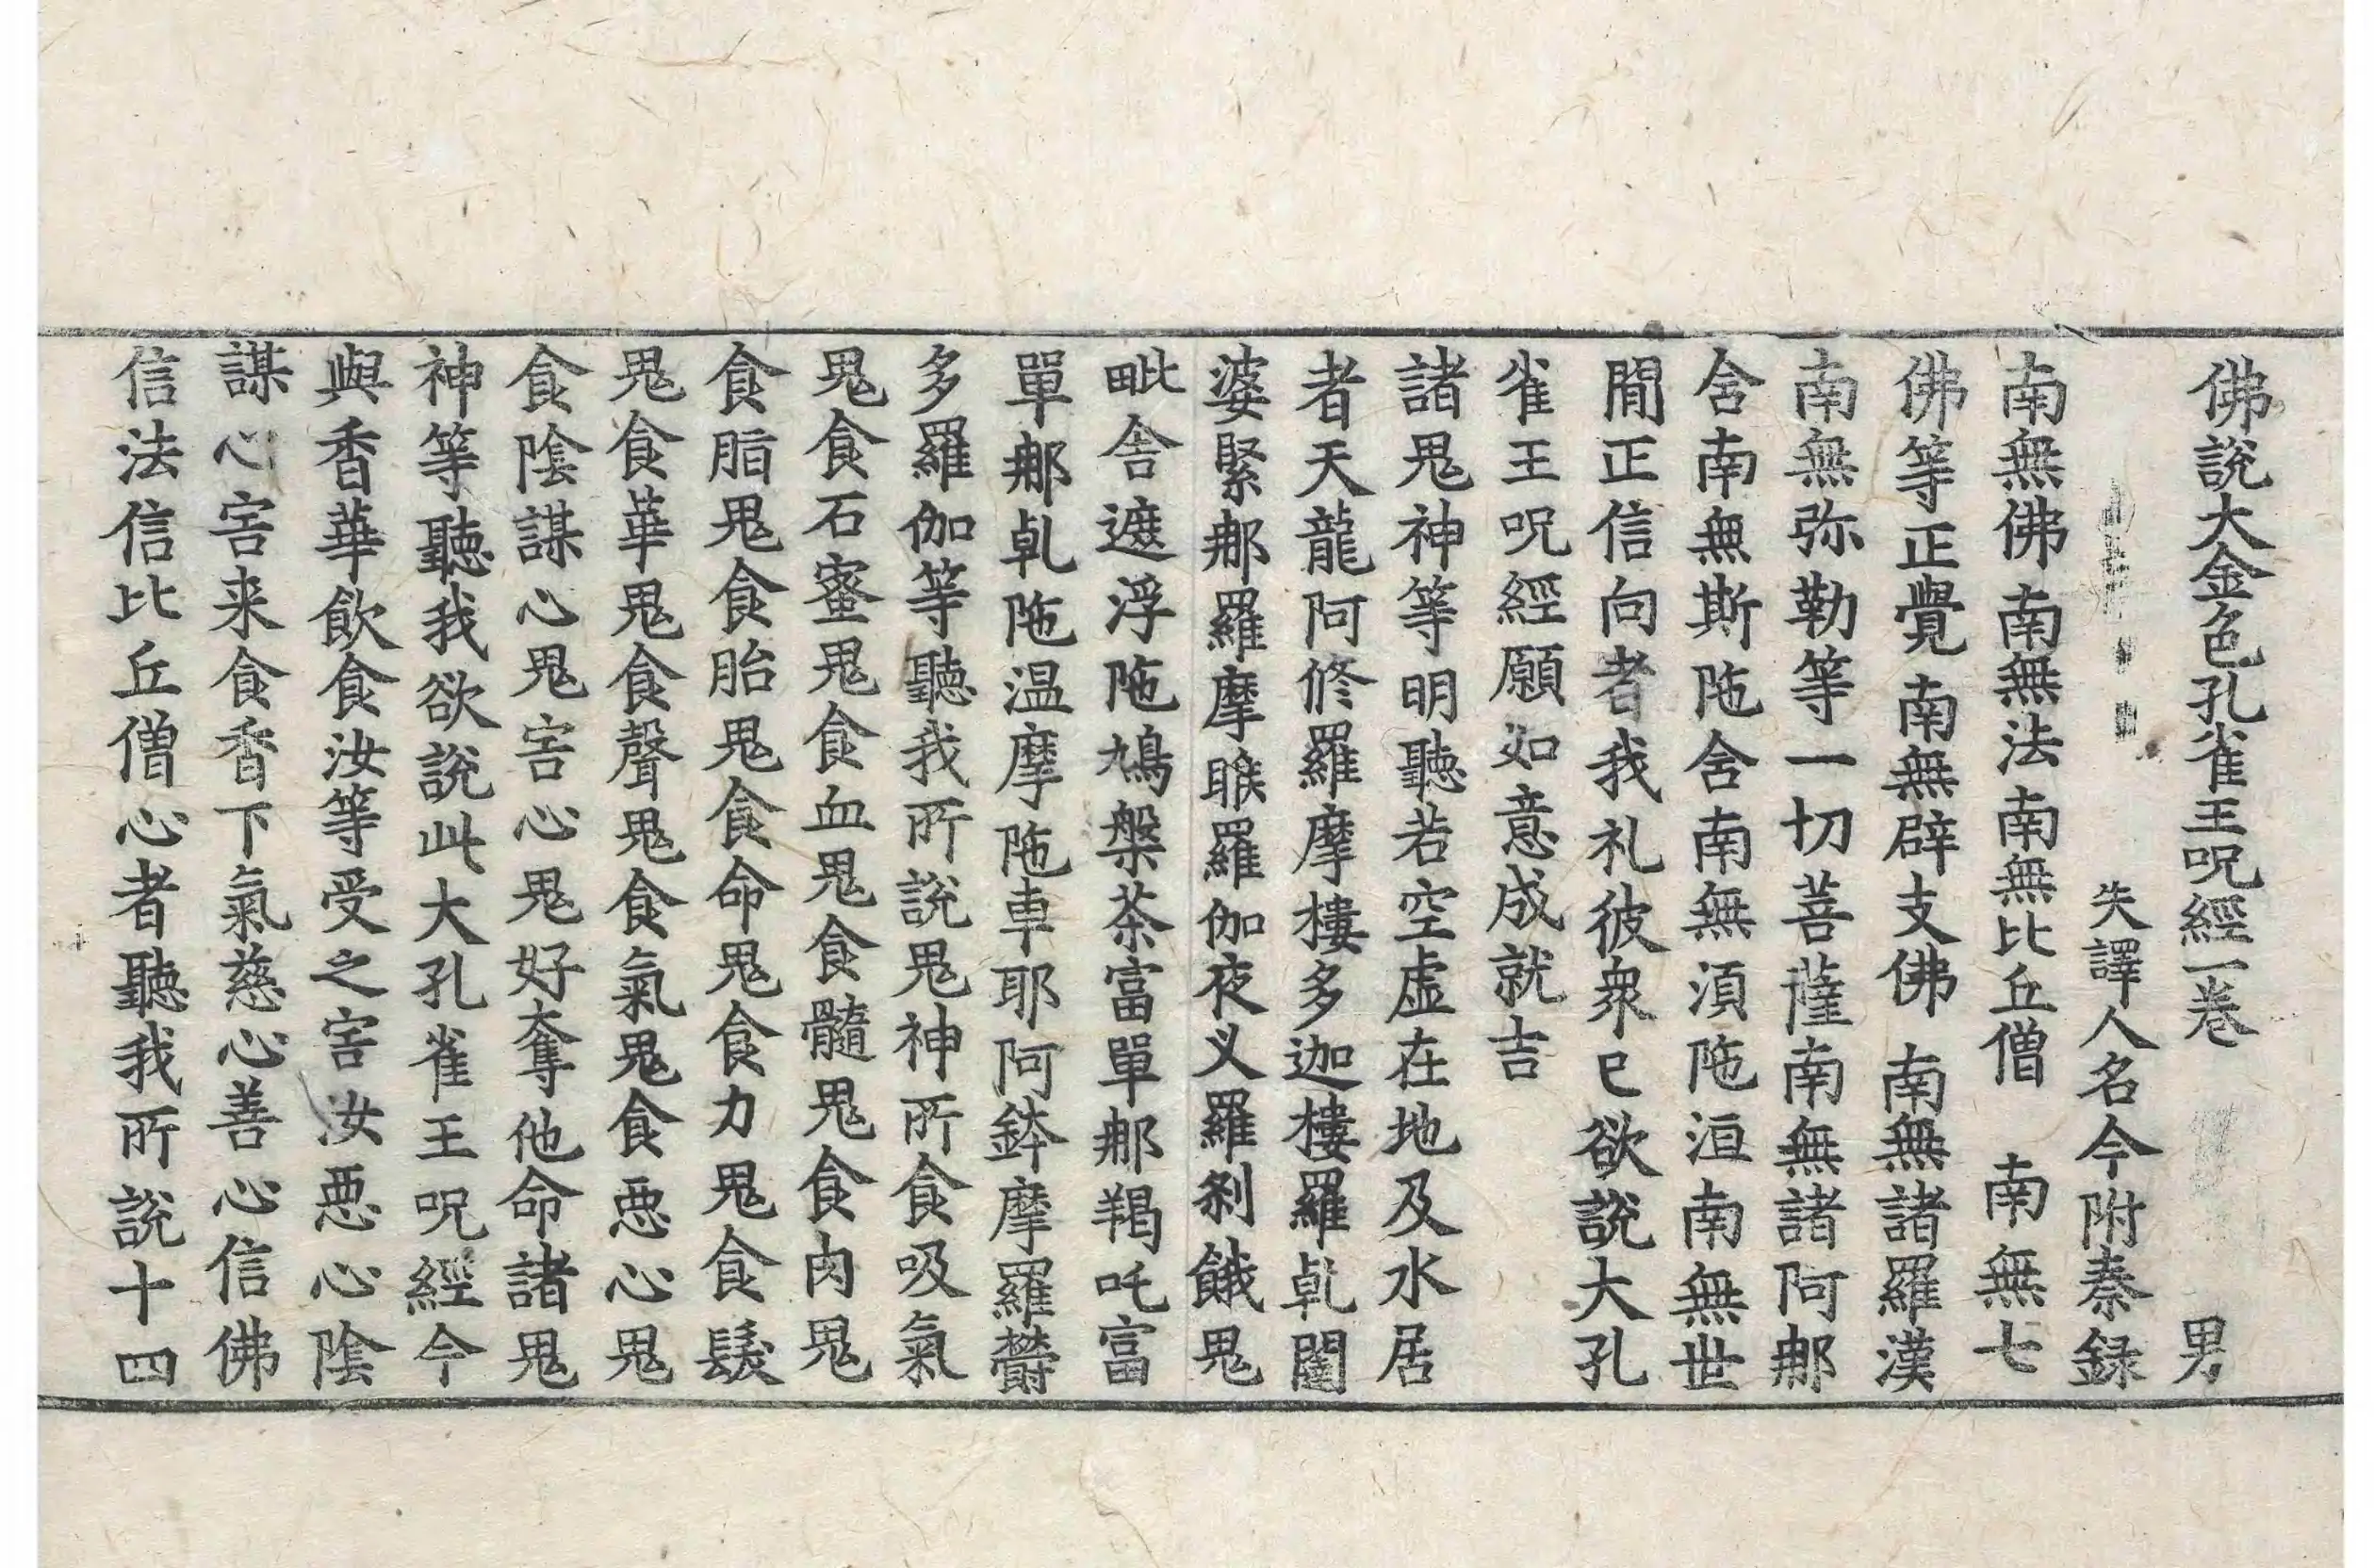 佛說大金色孔雀王呪經一卷 男
失譯人名今附秦録
南無佛南無法南無比丘僧 南無七
佛等正覺南無辟支佛 南無諸羅漢
南無弥勒等一切菩薩南無諸阿那
舍南無斯陁含南無湏陁洹南無世
間正信向者我礼彼衆已欲說大孔
雀王呪經願如意成就吉
諸鬼神等明聽若空虛在地及水居
者天龍阿修羅摩樓多迦樓羅乹闥
婆緊那羅摩睺羅伽夜义羅刹餓鬼
毗舍遮浮陁鳩槃茶富單那羯吒富
單那乹陁温摩陁車耶阿鉢摩羅欝
多羅伽等聽我所說鬼神所食吸氣
鬼食石蜜鬼食血鬼食髓鬼食肉鬼
食脂鬼食胎鬼食命鬼食力鬼食鬚
鬼食華鬼食聲鬼食氣鬼食惡心鬼
食陰謀心鬼害心鬼好奪他命諸鬼
神等聽我欲說此大孔雀王呪經今
與香華飲食汝等受之害汝惡心陰
謀心害来食香下氣慈心善心信佛
信法信比丘僧心者聽我所說十四